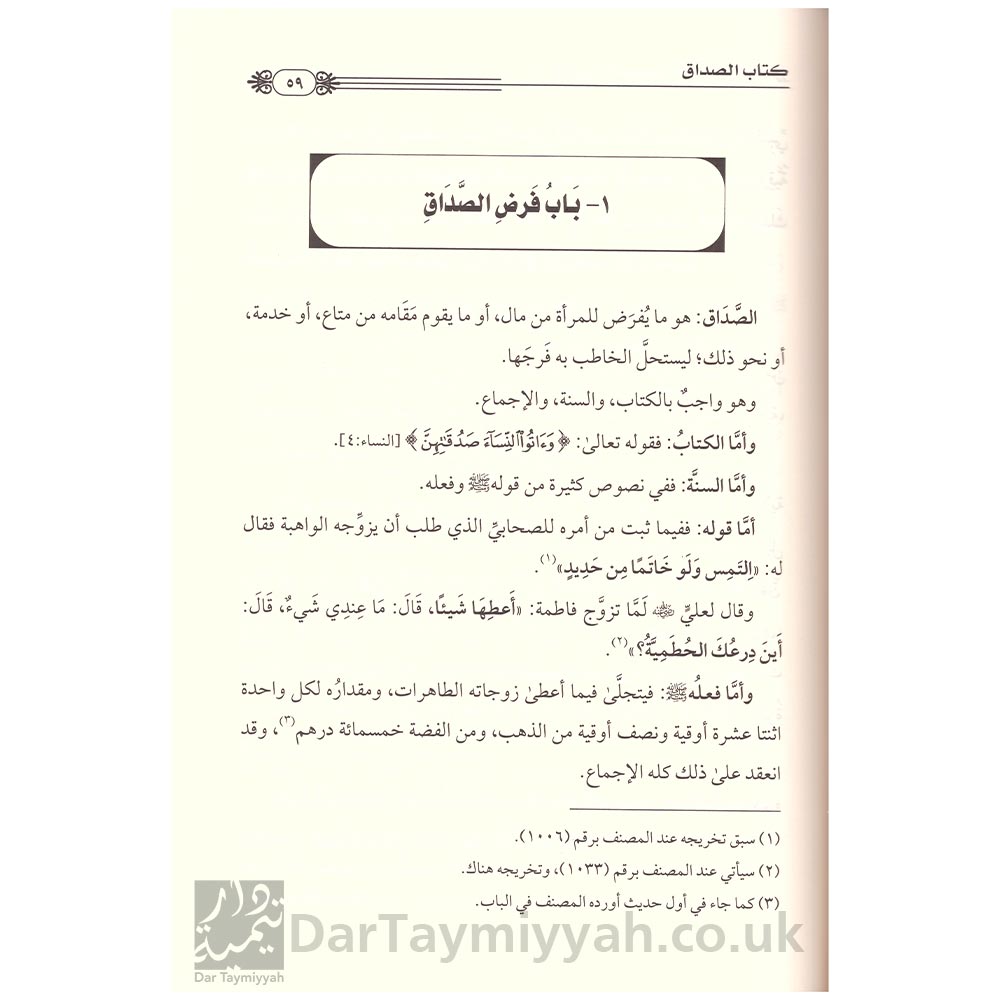 كتاب الصداق
٥٩
١- بَابُ فَرضِ الصَّدَاقِ
الصَّدَاق: هو ما يُفرَض للمرأة من مال، أو ما يقوم مَقَامه من متاع، أو خدمة،
أو نحو ذلك؛ ليستحلَّ الخاطب به فَرجَها.
وهو واجبٌ بالكتاب، والسنة، والإجماع.
وأمَّا الكتابُ: فقوله تعالىٰ: ﴿وَءَاتُوا۟ ٱلنِّسَآءَ صَدُقَـٰتِهِنَّ﴾ [النساء:٤].
وأمَّا السنَّة: ففي نصوص كثيرة من قوله ﷺ وفعله.
أمَّا قوله: ففيما ثبت من أمره للصحابيِّ الذي طلب أن يزوِّجه الواهبة فقال
له: «اِلتَمِس وَلَو خَاتَمًا مِن حَدِيدٍ»(١).
وقال لعليٍّ ﵁ لَمَّا تزوَّج فاطمة: «أَعطِهَا شَيئًا، قَالَ: مَا عِندِي شَيءٌ، قَالَ:
أَينَ دِرعُكَ الحُطَمِيَّةُ؟»(٢).
وأمَّا فعلُه ﷺ: فيتجلَّىٰ فيما أعطىٰ زوجاته الطاهرات، ومقدارُه لكل واحدة
اثنتا عشرة أوقية ونصف أوقية من الذهب، ومن الفضة خمسمائة درهم(٣)، وقد
انعقد علىٰ ذلك كله الإجماع.
(١) سبق تخريجه عند المصنف برقم (١٠٠٦).
(٢) سيأتي عند المصنف برقم (١٠٣٣)، وتخريجه هناك.
(٣) كما جاء في أول حديث أورده المصنف في الباب.
دار تيمية
Dar Taymiyyah
DarTaymiyyah.co.uk